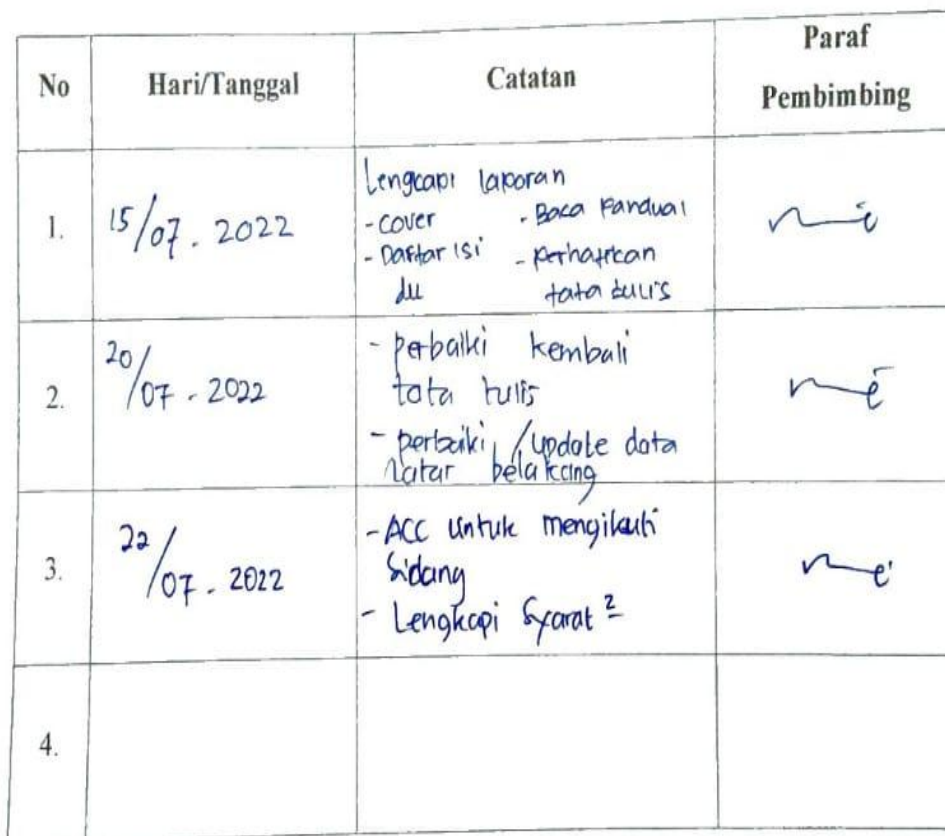 No Hari/Tanggal Catatan Paraf
Pembimbing
1. 15/07. 2022 Lengkapi laporan
- Cover - Baca Panduan
- Daftar isi - perhatikan
dll tata tulis
2. 20/07. 2022 - perbaiki kembali
tata tulis
- perbaiki /update data
latar belakang
3. 22/07. 2022 - ACC untuk mengikuti
Sidang
- Lengkapi Syarat ²
4.